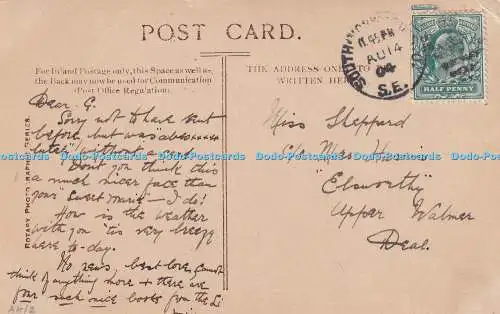 POST CARD.
For Inland Postage only, this Space as well as
the Back may now be used for Communication
(Post Office Regulation).
THE ADDRESS ONLY TO BE
WRITTEN HERE
ROTARY PHOTOGRAPHIC SERIES.
SOUTH
11.45 PM
AU 14
04
S.E.
HALF PENNY
Dear G.
Sorry not to have sent
before but was
without a card.
Don't you think this
a much nicer face than
your "sweet marie" — I do!
How is the weather
with you 'tis very breezy
here to-day.
No news, best love, cannot
think of anything more & there are
four such nice books from the Li
Miss Sheppard
C/o Mrs
"Elsworthy"
Upper Walmer
Deal.
Dodo-Postcards Dodo-Postcards Dodo-Postcards Dodo-Postcards Dodo-Postcards Dodo-Postcards